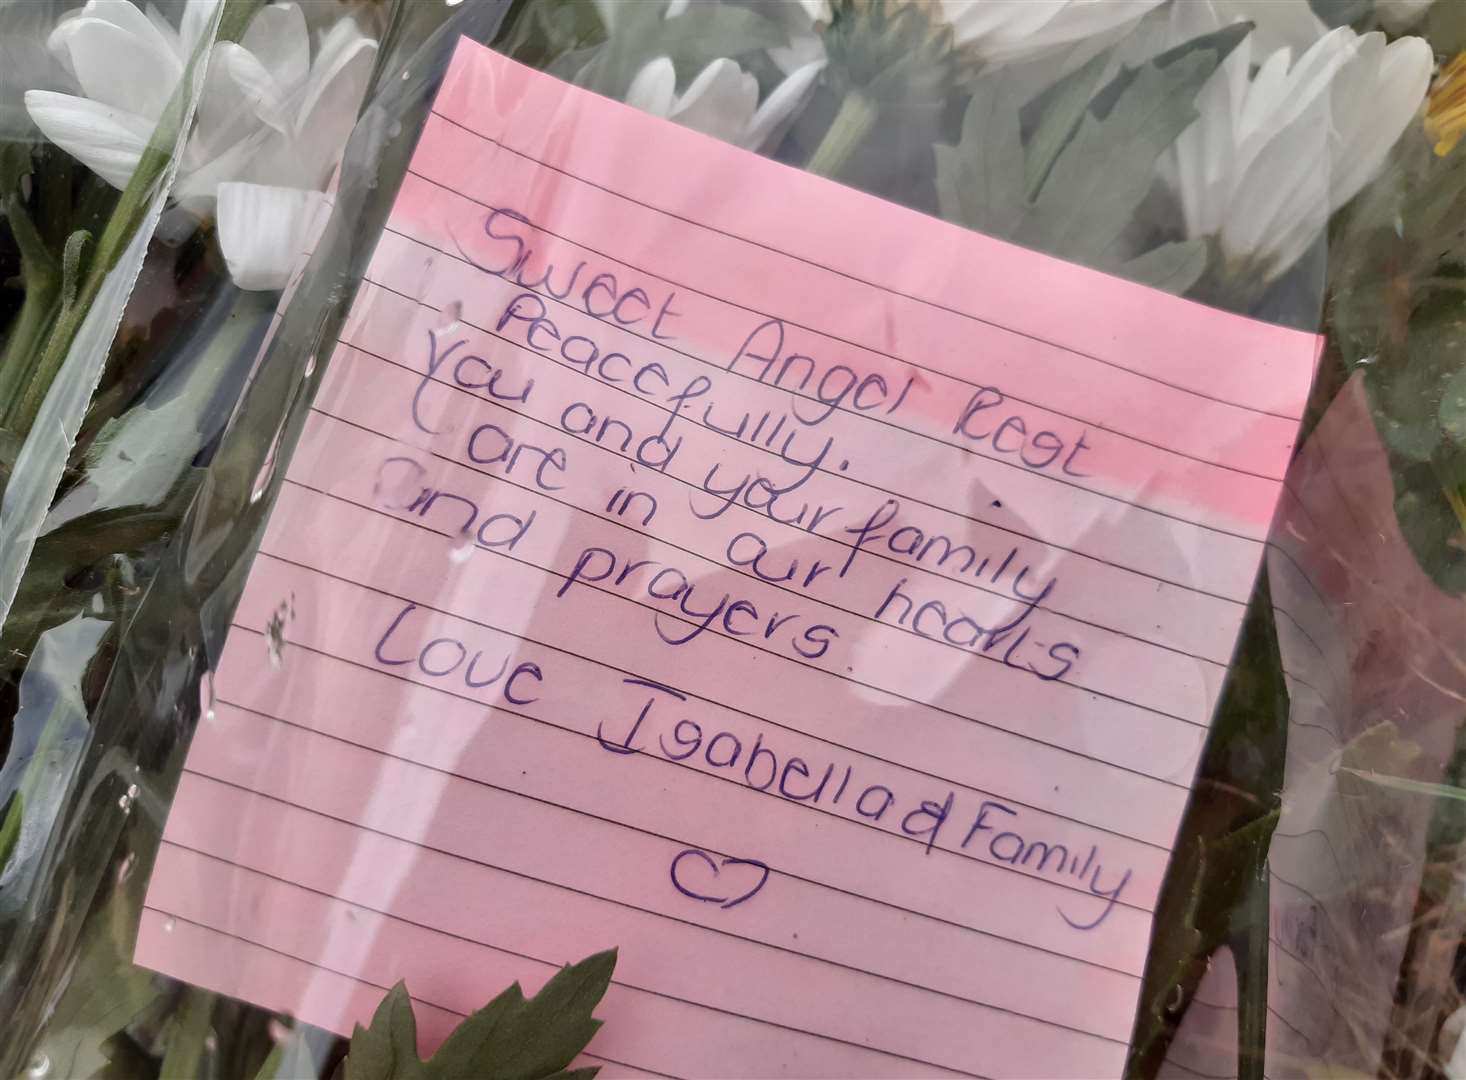 Sweet Angel Rest
Peacefully.
You and your family
are in our hearts
and prayers.
Love Isabella & Family